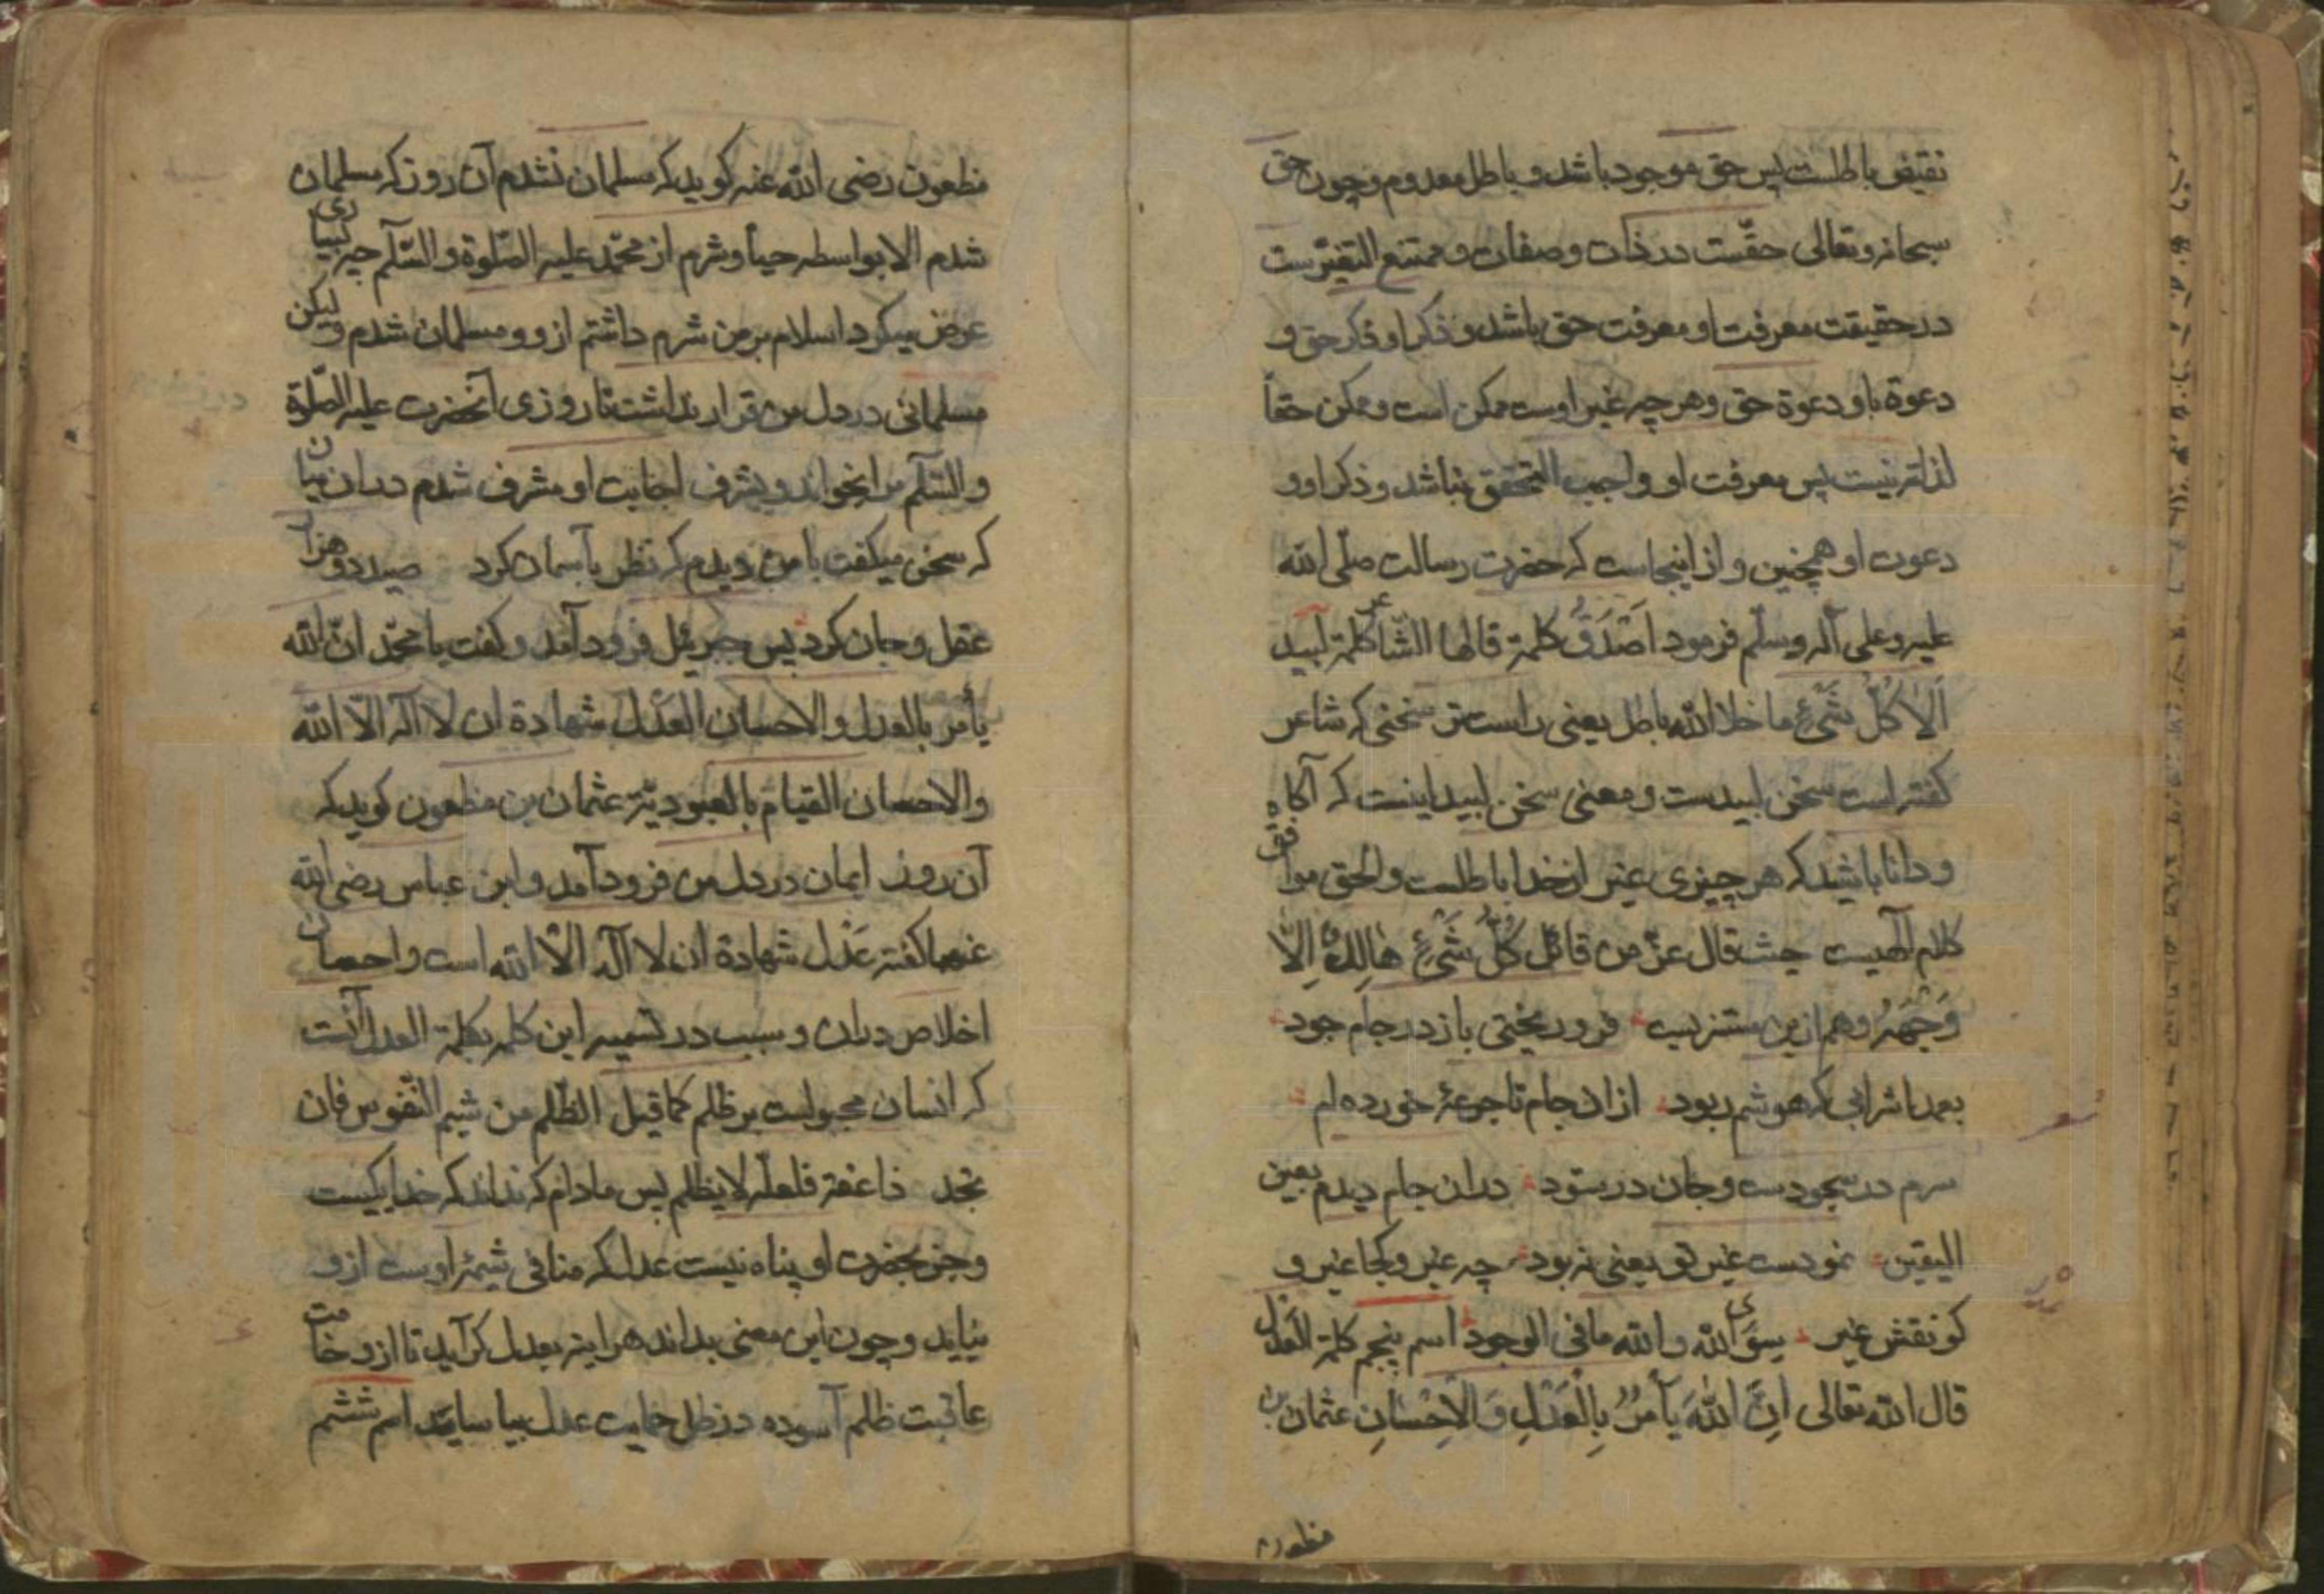 نقیض باطلست پس حق موجود باشد و باطل معدوم و چون حق
سبحانه وتعالی حقّست در ذات و صفات و ممتنع التغیّرست
در حقیقت معرفت او معرفت حق باشد و ذکر او ذکر حق و
دعوة باو دعوة حق وهر چه غیر اوست ممکن است و ممکن حقاً
لذاته نیست پس معرفت او واجب التحقق نباشد و ذکر او و
دعوت او همچنین و از اینجاست که حضرت رسالت صلّی الله
علیه وعلی آله وسلّم فرمود اَصْدَقُ کلمة قالها الشّاعر کلمة لبید
اَلاٰ کُلُّ شَیْءٍ ما خلا الله باطل یعنی راست تر سخنی که شاعر
کفته است سخن لبیدست و معنی سخن لبید اینست که آکاه
و دانا باشید که هر چیزی غیر از خدا باطلست والحق موافق
کلام آلهیست حیث قال عزّ من قائل کُلُّ شَیْءٍ هٰالِكٌ اِلاّٰ
وَجْهَهُ وهم ازین مستزیب فرو ریختی باز در جام جود
بعمدا شرابی که هوشم ربود از ان جام تا جرعۀ خورده ام
سرم در سجودست و جان در ستود دران جام دیدم بعین
الیقین نمودست غیر تو یعنی نه بود چه غیر و کجا غیر و
کو نقش غیر سِوَی الله والله ما فی الوجود اسم پنجم کلمة العَدْل
قال الله تعالی اِنَّ اللّٰهَ یَأمُرُ بِالْعَدْلِ وَ الْاِحْسٰانِ عثمان بن
مظعون
مظعون رضی الله عنه کوید که مسلمان نشدم آن روز که مسلمان
شدم الا بواسطه حیأ و شرم از محمّد علیه الصّلوة والسّلام چه بسیاری
عرض میکرد اسلام بر من شرم داشتم ازو و مسلمان شدم ولیکن
مسلمانی در دل من قرار نداشت تا روزی آنحضرت علیه الصّلوة
والسّلام مرا بخواند و بشرف اجابت او مشرف شدم دران میان
که سخن میکفت با من دیدم که نظر بآسمان کرد صید دو هزار
عقل و جان کرد پس جبرئل فرود آمد و کفت یا محمّد انّ الله
یأمر بالعدل والاحسان العَدْل شهادة ان لا اله الاّ الله
والاحسان القیام بالعبودیّة عثمان بن مظعون کوید که
آن روز ایمان در دل من فرود آمد و ابن عباس رضی الله
عنهما کفته عَدْل شهادة ان لا اله الاّ الله است و احسان
اخلاص دران و سبب در تسمیه این کلمه بکلمة العدل آنست
که انسان مجبولست بر ظلم کما قیل الظّلم من شیم النّفوس فان
تجد ذا عفة فلعلّه لا یظلم پس مادام که نداند که خدا یکیست
و جز بحضرت او پناه نیست عدل که منافی شیمۀ اوست ازو
نیاید و چون این معنی بداند هر اینه بعدل کرآید تا از وخامت
عاقبت ظلم آسوده در ظل حمایت عدل بیاساید اسم ششم